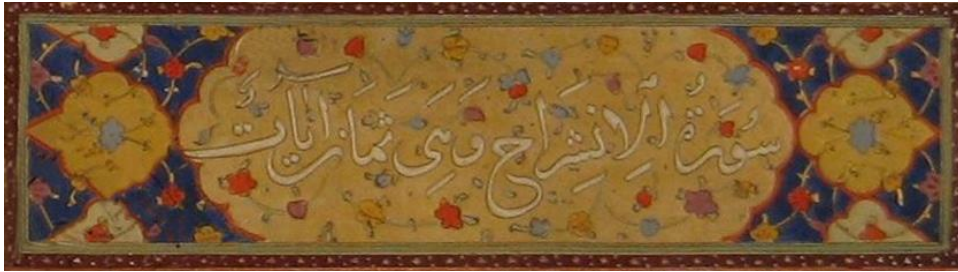 سُورَةُ الِانْشِرَاحِ وَهِيَ ثَمَانِ آيَاتٍ